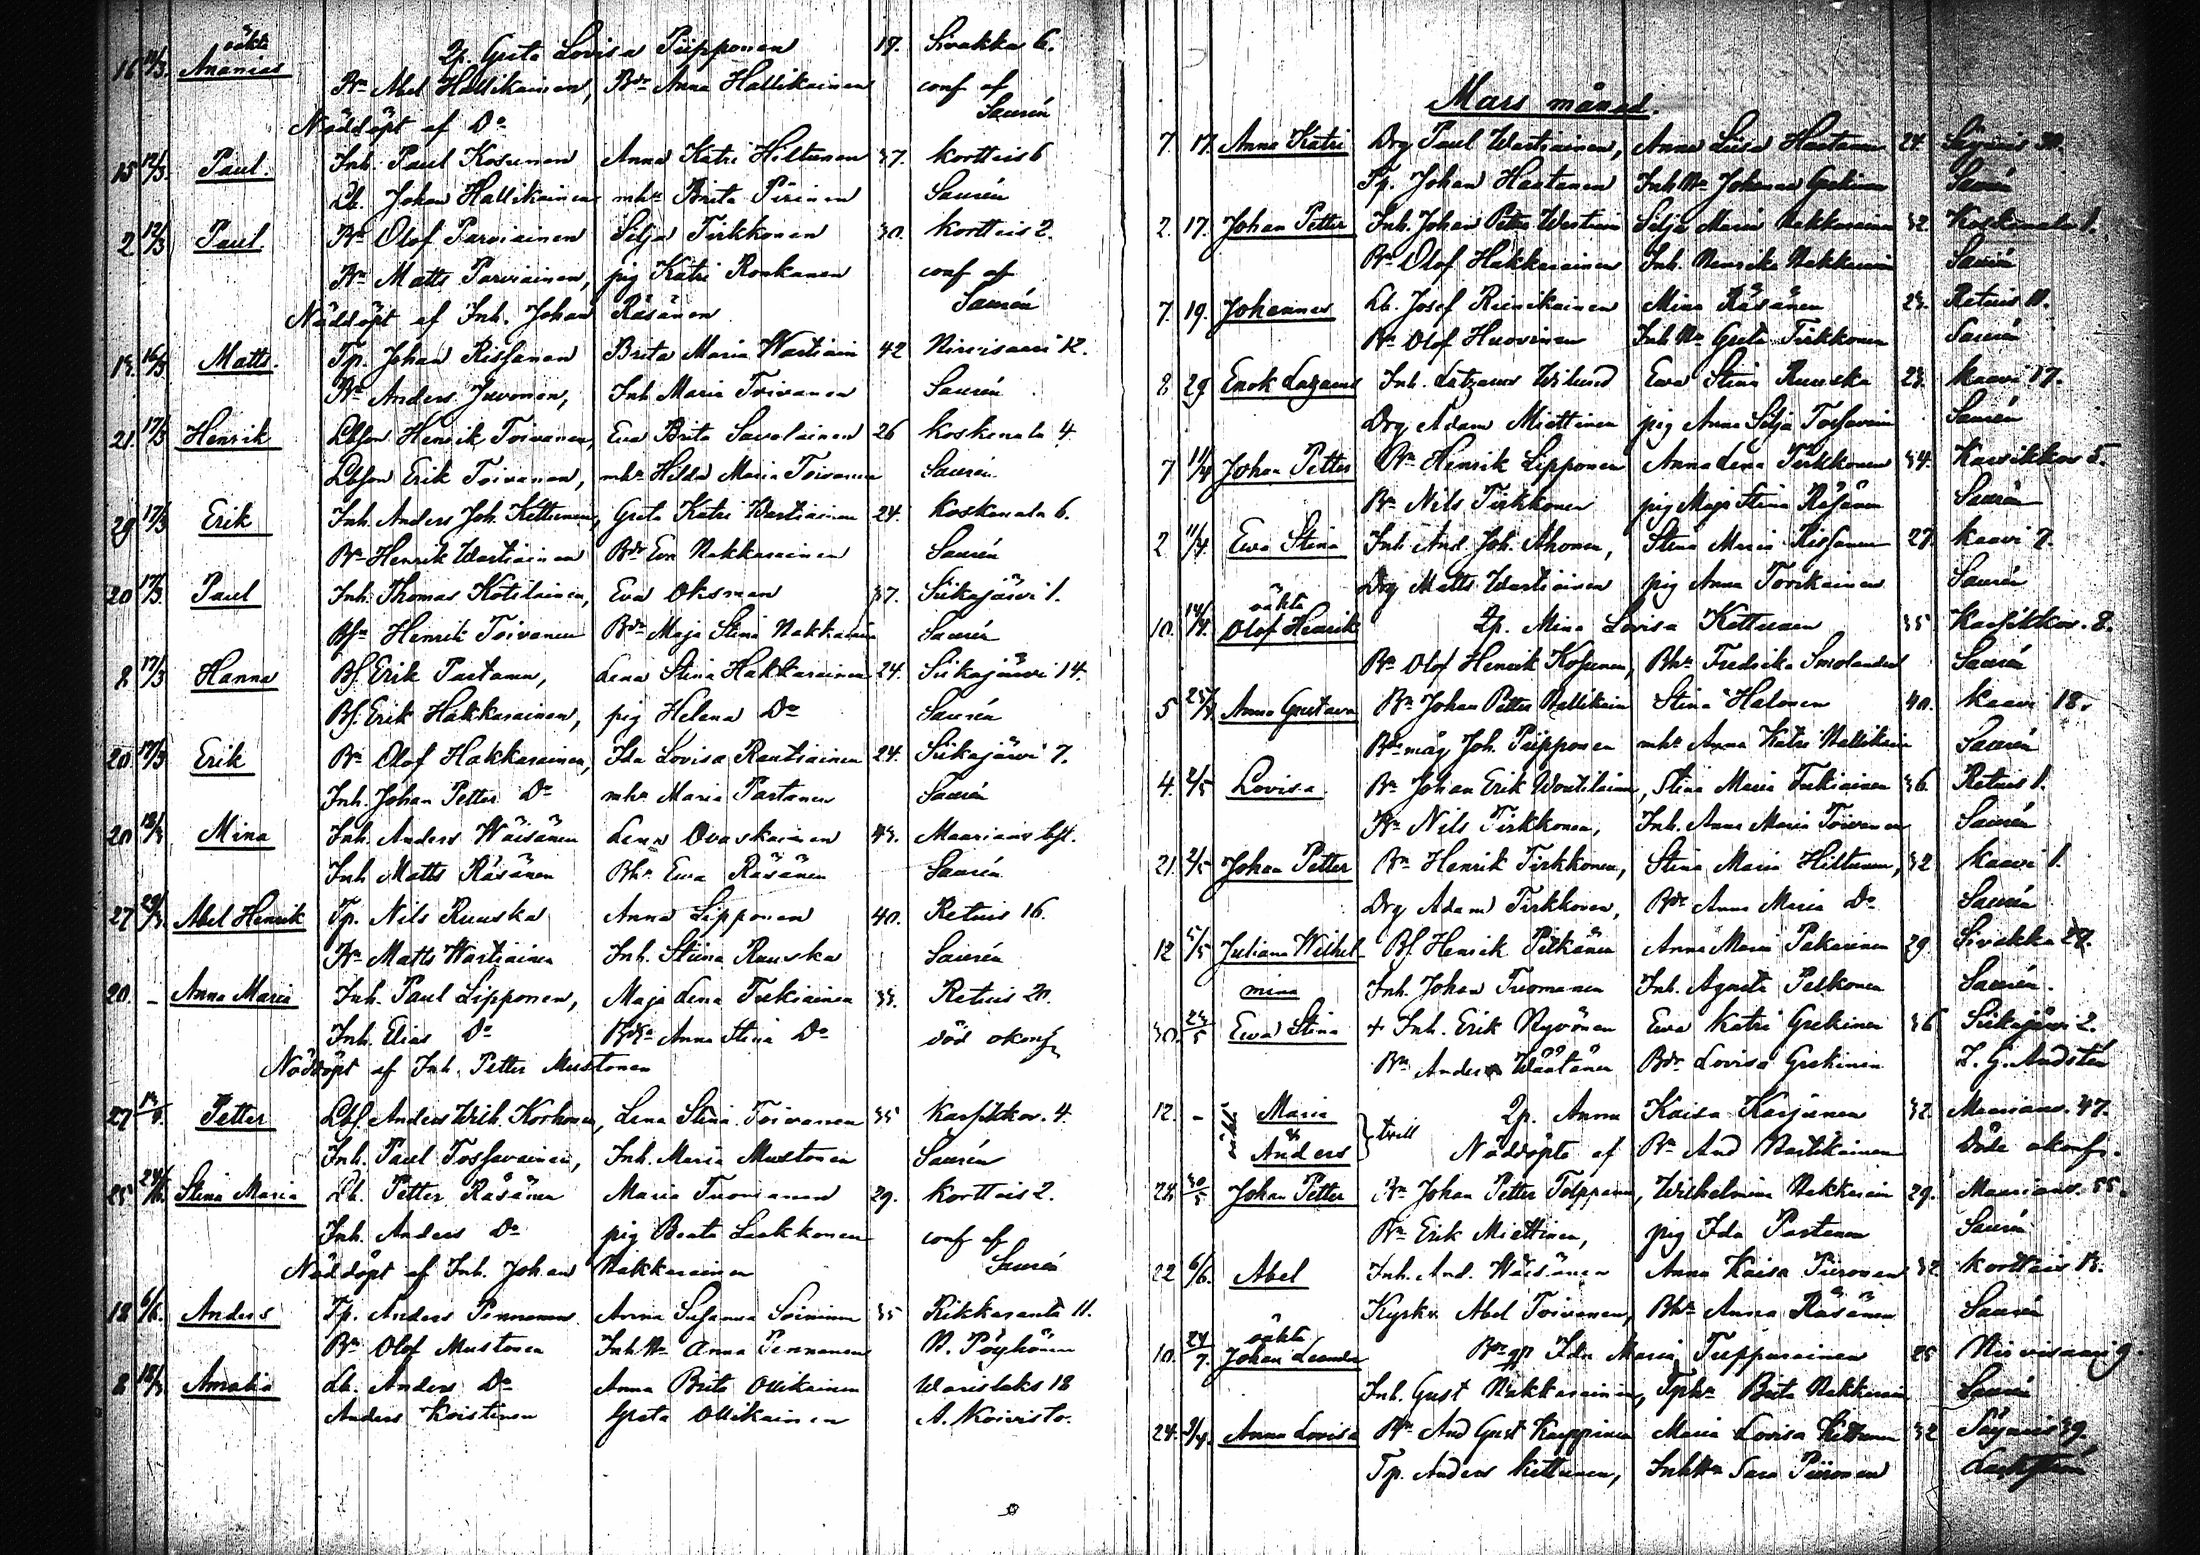 oäkta 2p. Greta Lovisa Piipponen 19. Sivakka 6.
16 Ananias
Bn Abel Hallikainen, Bdr Anna Hallikainen conf af
Nöddöpt af Do Saurén
15 12/3 Paul. Inh. Paul Kosunen Anna Katri Hiltunen 37. Kortteis 6
Lb. Johan Hallikainen mhr Brita Piirinen Saurén
2 12/3 Paul Bn Olof Parviainen Silja Tirkkonen 30. Kortteis 2.
Bn Matts Parviainen, pig Katri Ronkanen conf af
Nöddöpt af Inh. Johan Räsänen Saurén
16/3 Matts. Tp. Johan Rissanen Brita Maria Wartiain 42 Niinisaari 12.
Bn Anders Juvonen, Inh Maria Toivanen Saurén
21. 17/3 Henrik Lbson Henrik Toivanen, Eva Brita Savolainen 26 Koskenala 4.
Lbson Erik Toivanen, mhr Hilda Maria Toivanen Saurén
29 17/3 Erik Inh. Anders Joh. Kettunen, Greta Katri Wartiainen 24. Koskenala 6.
Bn Henrik Wartiainen Bdr Eva Hakkarainen Saurén
20 17/3 Paul Inh. Thomas Kotilainen, Eva Oksman 37. Siikajärvi 1.
Bsn Henrik Toivanen Bdr Maja Stina Hakkarain Saurén
8 17/3 Hanna Bs. Erik Partanen, Lena Stina Hakkarainen 24. Siikajärvi 14.
Bs. Erik Hakkarainen, pig Helena Do Saurén
20. 17/3 Erik Bn Olof Hakkarainen, Ida Lovisa Rautiainen 24. Siikajärvi 7.
Inh. Johan Petter Do mhr Maria Partanen Saurén
20 18/3 Mina Inh. Anders Wäisänen Lena Ovaskainen 43. Maarians
Inh Matts Räsänen Bhr Ewa Räsänen Saurén
27 Abel Henrik Tp. Nils Ruuska Anna Lipponen 40. Retuis 16.
Bn Matts Wartiainen Inh. Stina Ruuska Saurén
20. – Anna Maria Inh. Paul Lipponen, Maja Lena Tukiainen 33. Retuis 20.
Inh. Elias Do Anna Stina Do död okonf
Nöddöpt af Inh. Petter Mustonen
27 Petter Lbs. Anders Wilh. Korhonen, Lena Stina Toivanen 35 Karsikkov. 4.
Inh. Paul Tossavainen, Inh. Maria Mustonen Saurén
25 Stina Maria Lb. Petter Räsänen Maria Tuomanen 29. Kortteis 2.
Inh. Anders Do pig Beata Laakkonen conf af
Nöddöpt af Inh. Johan Hakkarainen Saurén
18 6/6. Anders Tp. Anders Pennanen Anna Susanna Soininen 35 Rikkaranta 11.
Bn Olof Mustonen Inh Hn Anna Pennanen N. Pöyhönen
8 Amalia Lb. Anders Do Anna Brita Ollikainen Warislaks 18
Anders Koistinen Greta Ollikainen A. Koivisto.
Mars månad.
7. 17. Anna Katri Drg Paul Wartiainen, Anna Lisa Haatanen 24. Säyneis 30.
Tp. Johan Haatanen Inh Hn Johanna Grekinen Saurén
2. 17. Johan Petter Inh. Johan Petter Wartiain Silja Maria Hakkarainen 32. Koskenala 1.
Bn Olof Hakkarainen Inh. Henrika Hakkarain Saurén
7. 19. Johannes Lb. Josef Reinikainen Mina Räsänen 23. Retuis 11.
Bn Olof Huovinen Inh Hn Greta Tirkkonen Saurén
8 29 Enok Lazarus Inh. Latzarus Wilund Eva Stina Ruuska 23. Kaavi 17.
Drg Adam Miettinen pig Anna Silja Tossavain Saurén
7 11/4 Johan Petter Bn Henrik Lipponen Anna Lena Tirkkonen 34. Karsikkov 5.
Bn Nils Tirkkonen pig Maja Stina Räsänen Saurén
2 11/4. Ewa Stina Inh And. Joh. Ahonen, Stina Maria Rissanen 27. Kaavi 7.
Drg Matts Wartiainen pig Anna Tovikainen Saurén
oäkta
10. 14/4. Olof Henrik 2p. Mina Lovisa Kettunen 35 Karsikkov. 8.
Bn Olof Henrik Kosunen, Bhr Fredrika Smolander Saurén
5 Anna Gustava Bn Johan Petter Hallikain Stina Halonen 40. Kaavi 18.
Bdsmåg Joh. Piipponen mhr Anna Katri Hallikain Saurén
4. 2/5 Lovisa. Bn Johan Erik Woutilainen, Stina Maria Tukiainen 36. Retuis 1.
Bn Nils Tirkkonen, Inh. Anna Maria Toivanen Saurén
21. 2/5 Johan Petter Bn Henrik Tirkkonen, Stina Maria Hiltunen, 32 Kaavi 1.
Drg Adam Tirkkonen, Bdr Anna Maria Do Saurén
12 5/5 Juliana Wilhel- Bs. Henrik Pitkänen Anna Maria Pakarinen 29 Sivakka 27.
mina Inh. Johan Tuomanen Inh. Agneta Pelkonen Saurén.
30. 23/5 Ewa Stina + Inh. Erik Ryynänen Ewa Katri Grekinen 36 Siikajärvi 2.
Bn Anders Wäätänen Bdr Lovisa Grekinen Z. G. Andstén
12. – oäkta Maria 2p. Anna Kaisa Karjunen 32. Maarians. 47.
& Anders tvill Nöddöpte af Bn And Hartikainen Döde okonf.
28 30/5 Johan Petter Bn Johan Petter Tolppanen, Wilhelmina Hakkarain 29. Maarians. 55.
Bn Erik Miettinen, pig Ida Partanen Saurén
22 6/6. Abel Inh. And. Wäisänen Anna Kaisa Piironen 32. Kortteis 13.
Kyrkv. Abel Toivanen, Bhr Anna Räsänen Saurén
oäkta
10. 24/7. Johan Leander Ida Maria Tuppurainen 25 Niinisaari 9.
Inh. Gust Hakkarainen, Tphr Brita Hakkarain Saurén
24. Anna Lovisa Bn And Gust Karppinen Maria Lovisa Kettunen 32 Säyneis 39.
Tp. Anders Kettunen, Inh Hn Sara Piironen